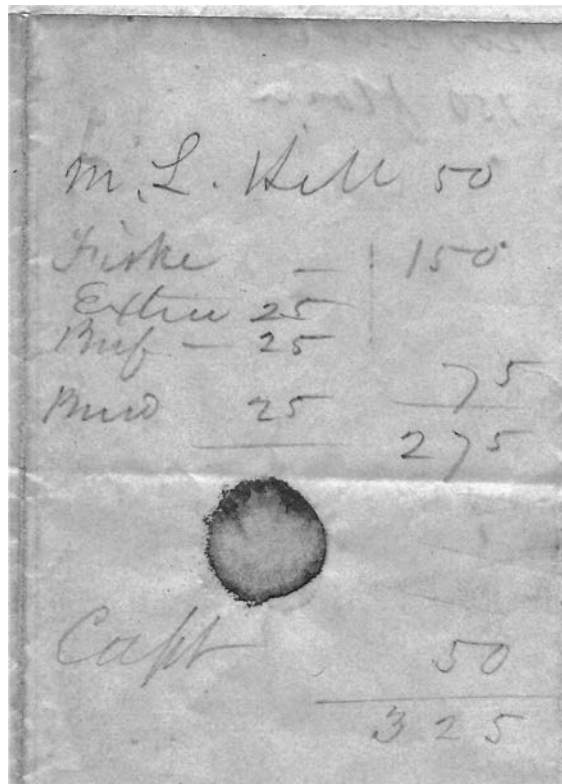 M. L. Hill 50
Fiske — 150
Extra 25
Buf — 25
75
25
275
Capt 50
325